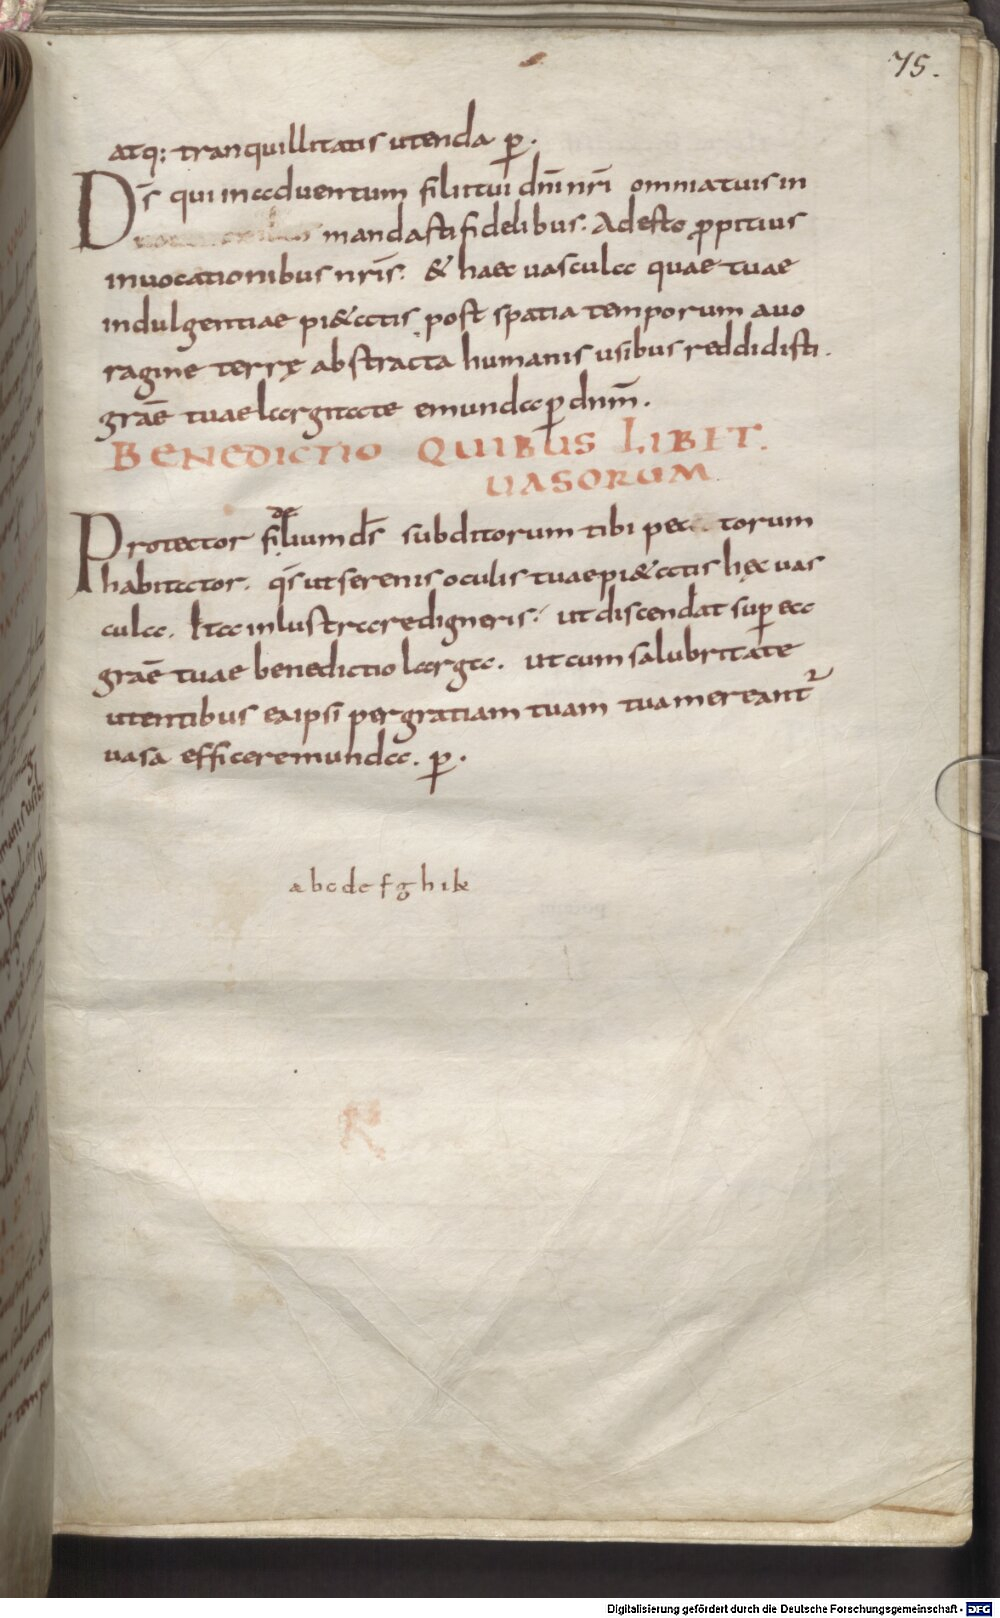 75.
atq; tranquillitatis utenda p̄.
Ds̄ qui in aduentum filii tui dn̄i nr̄i omnia tuis in
mandasti fidelibus. Adesto ꝓpitius
inuocationibus nr̄is. & haec uascula quae tuae
indulgentiae pi&atis post spatia temporum auo
ragine terrę abstracta humanis usibus reddidisti.
grāe tuae largitate emunda p̄ dnm̄.
BENEDICTIO QUIBUS LIBET.
UASORUM
Protector filium ds̄ subditorum tibi pec torum
habitator. qs̄ ut serenis oculis tuae pi&atis hęc uas
cula. Ita inlustrare digneris. ut discendat sup̄ ea
grāe tuae benedictio larga. ut cum salubritate
utentibus ea ipsi per gratiam tuam tua mereant᷑
uasa efficere munda. p̄.
a b c d e f g h i k
R
Digitalisierung gefördert durch die Deutsche Forschungsgemeinschaft - DFG